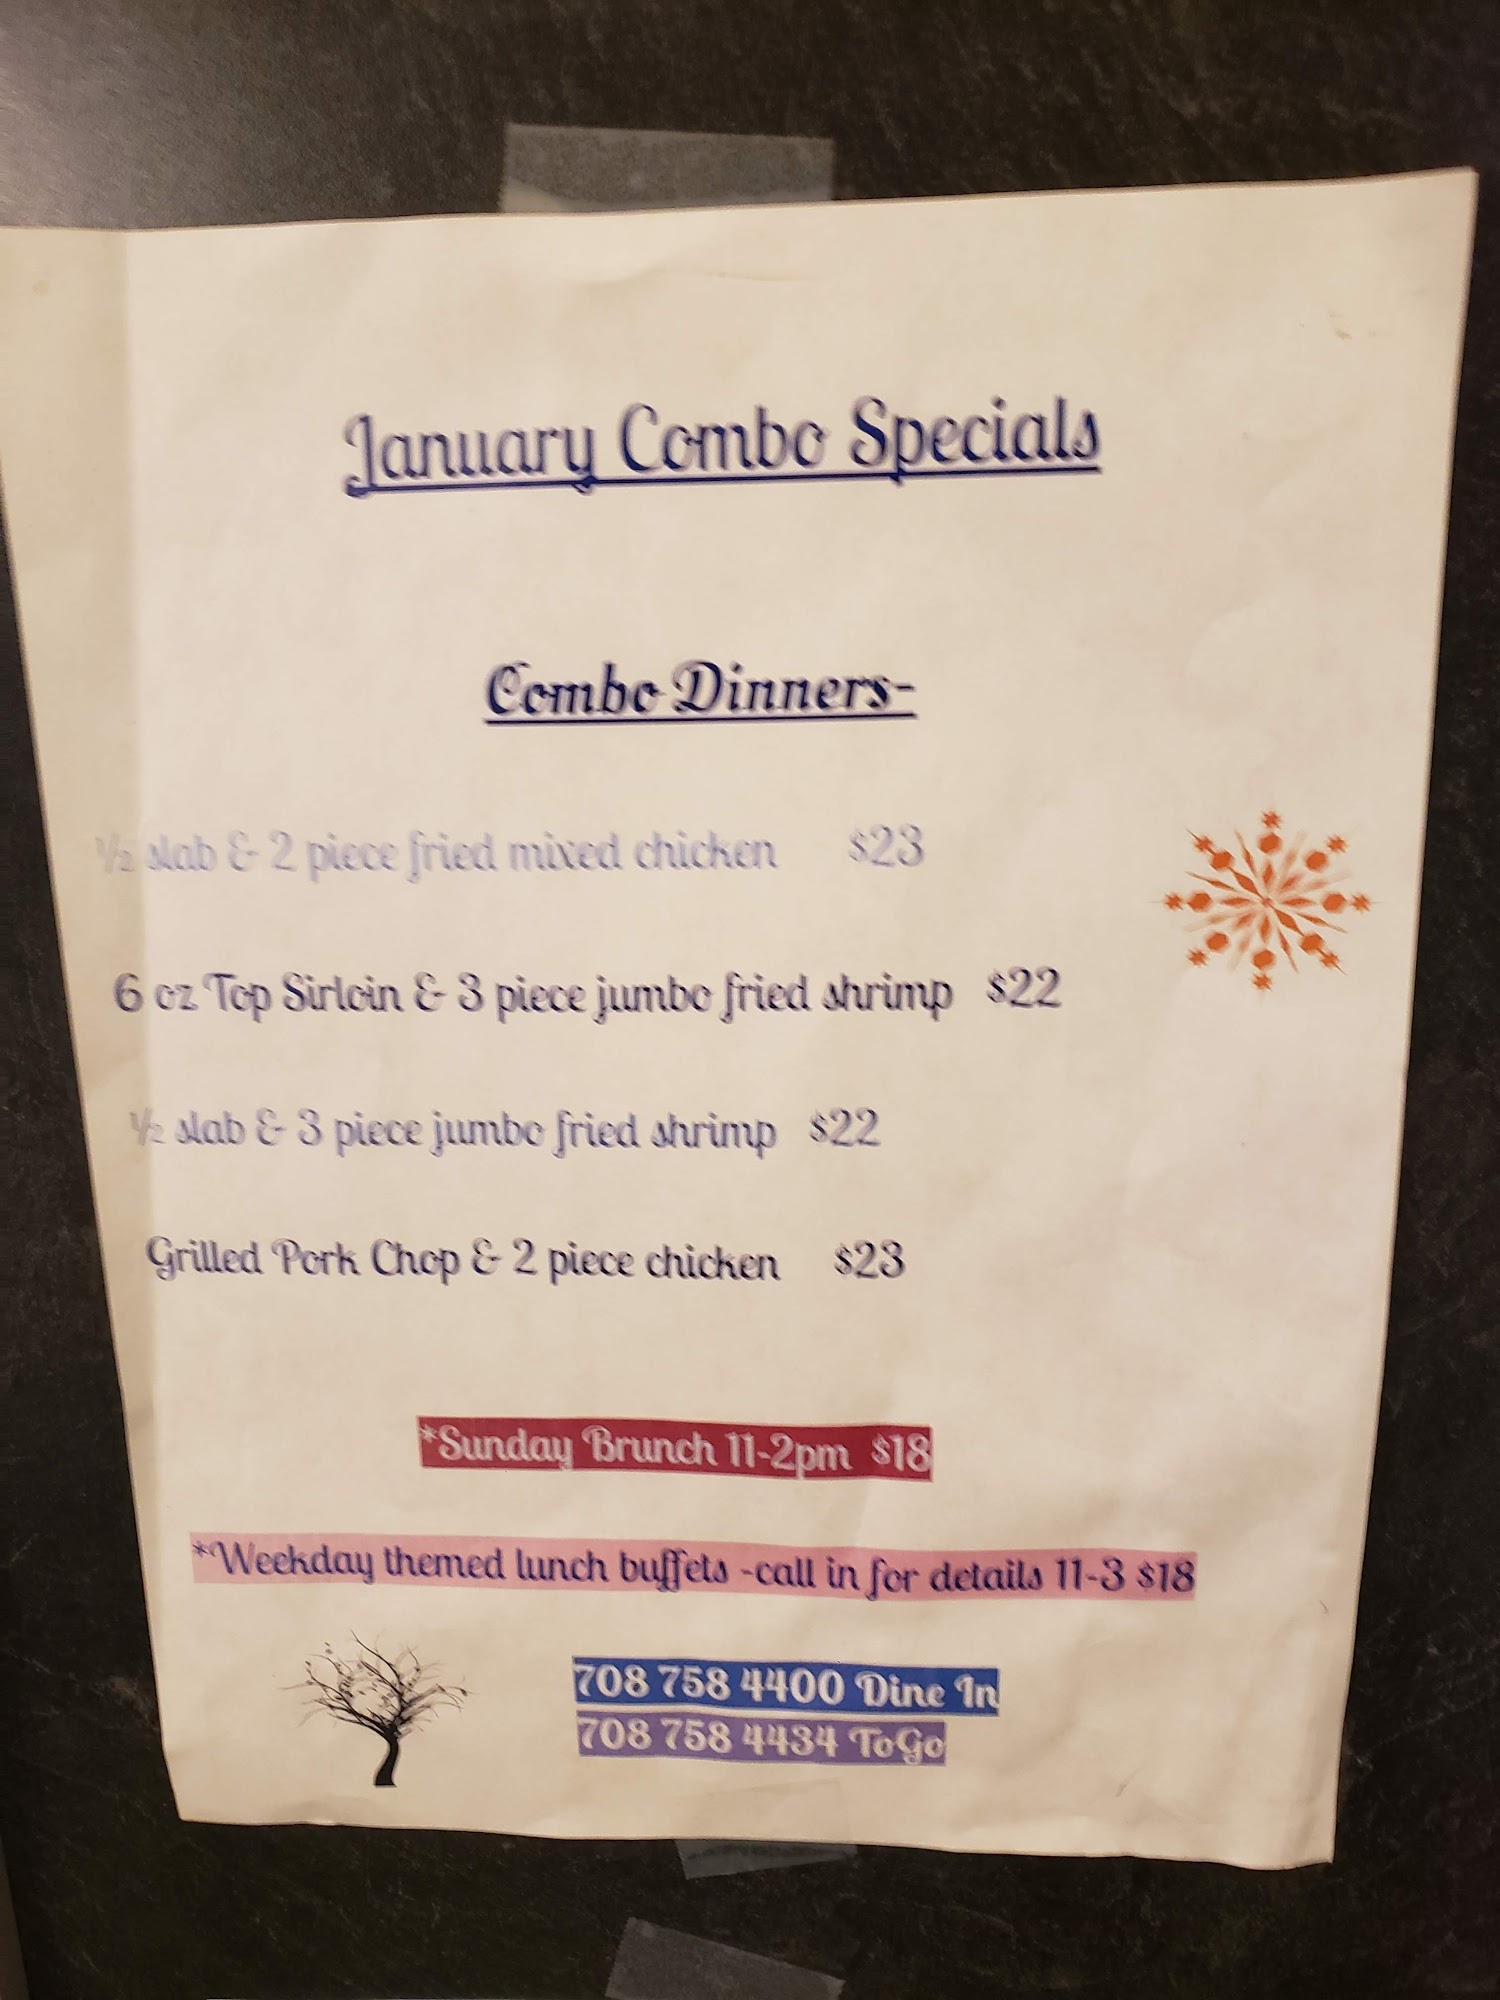 January Combo Specials
Combo Dinners-
½ slab & 2 piece fried mixed chicken $23
6 oz Top Sirloin & 3 piece jumbo fried shrimp $22
½ slab & 3 piece jumbo fried shrimp $22
Grilled Pork Chop & 2 piece chicken $23
*Sunday Brunch 11-2pm $18
*Weekday themed lunch buffets -call in for details 11-3 $18
708 758 4400 Dine In
708 758 4434 ToGo